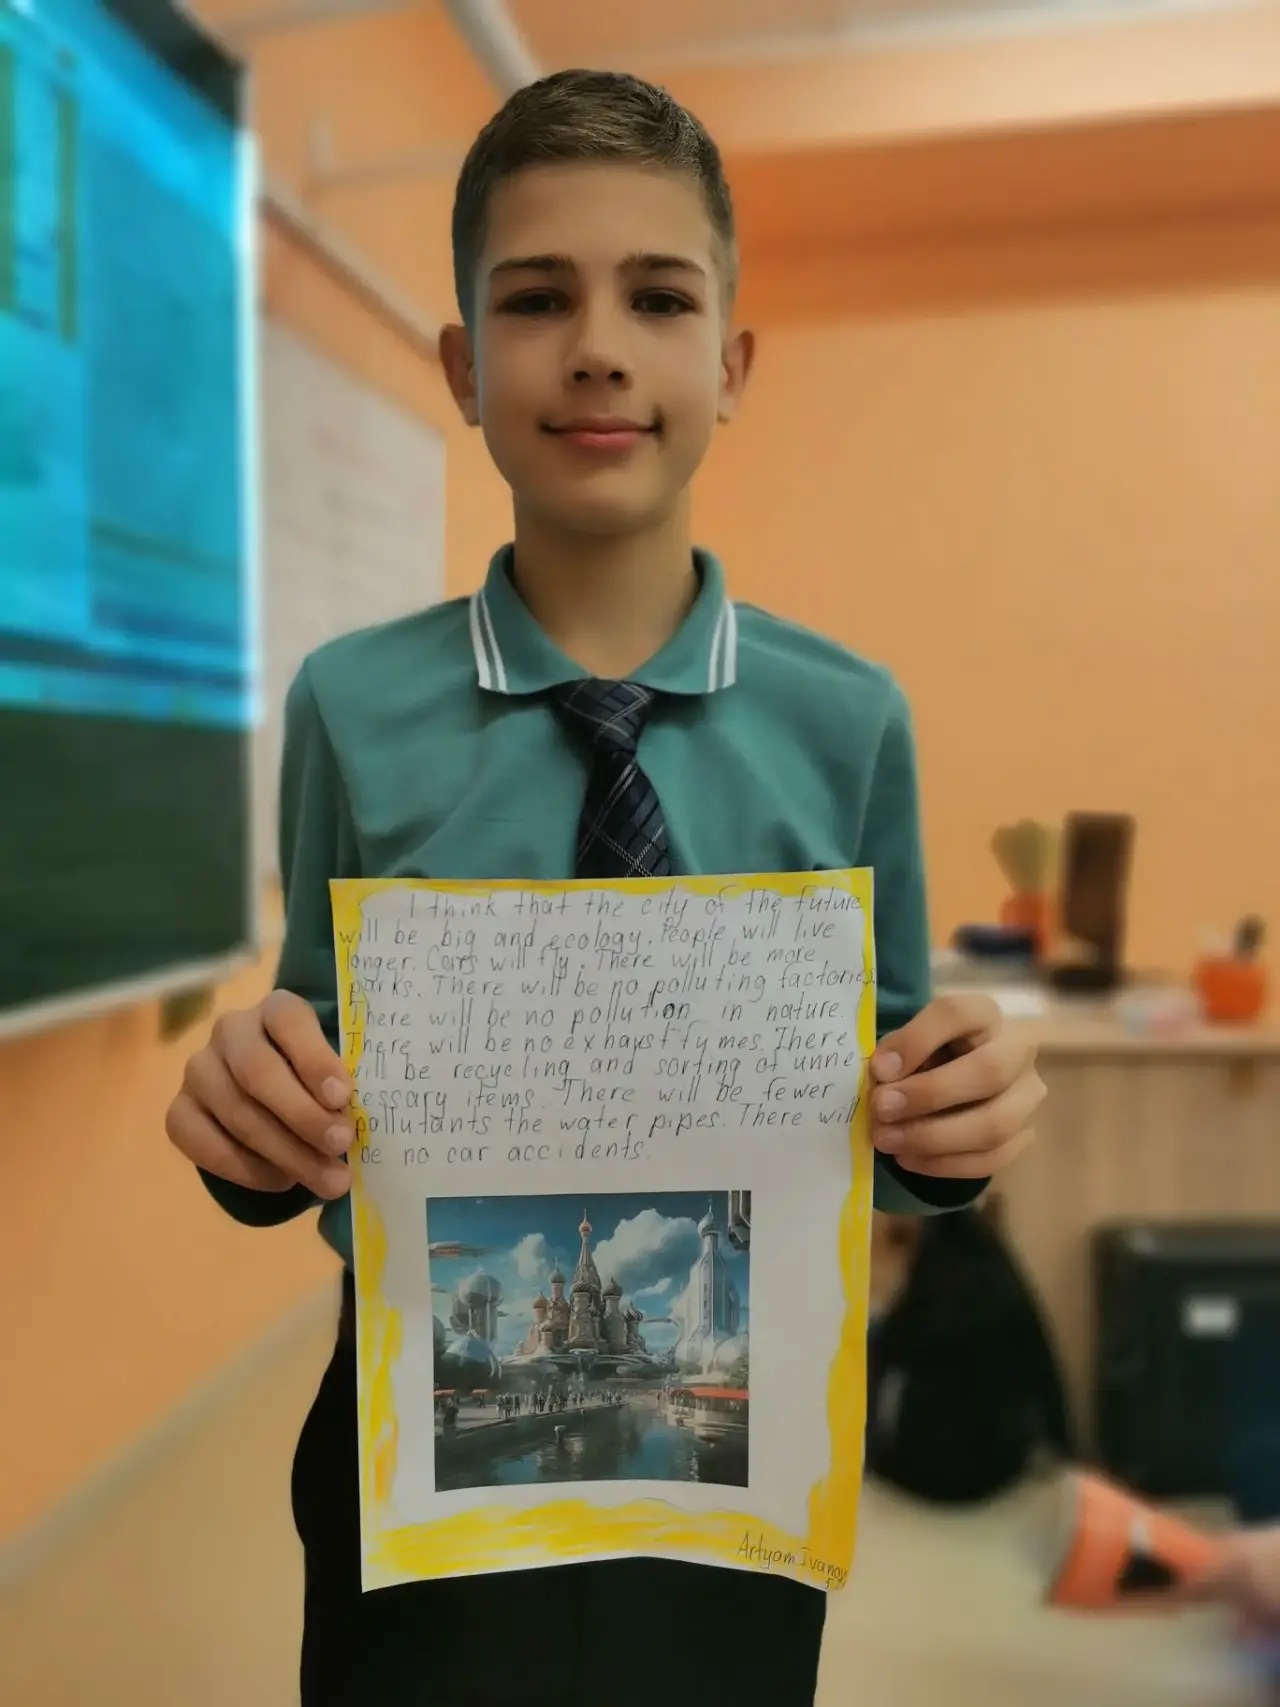 I think that the city of the future
will be big and ecology. People will live
longer. Cars will fly. There will be more
parks. There will be no polluting factories.
There will be no pollution in nature.
There will be no exhaust fumes. There
will be recycling and sorting of unne-
cessary items. There will be fewer
pollutants the water pipes. There will
be no car accidents.
Artyom Ivanov